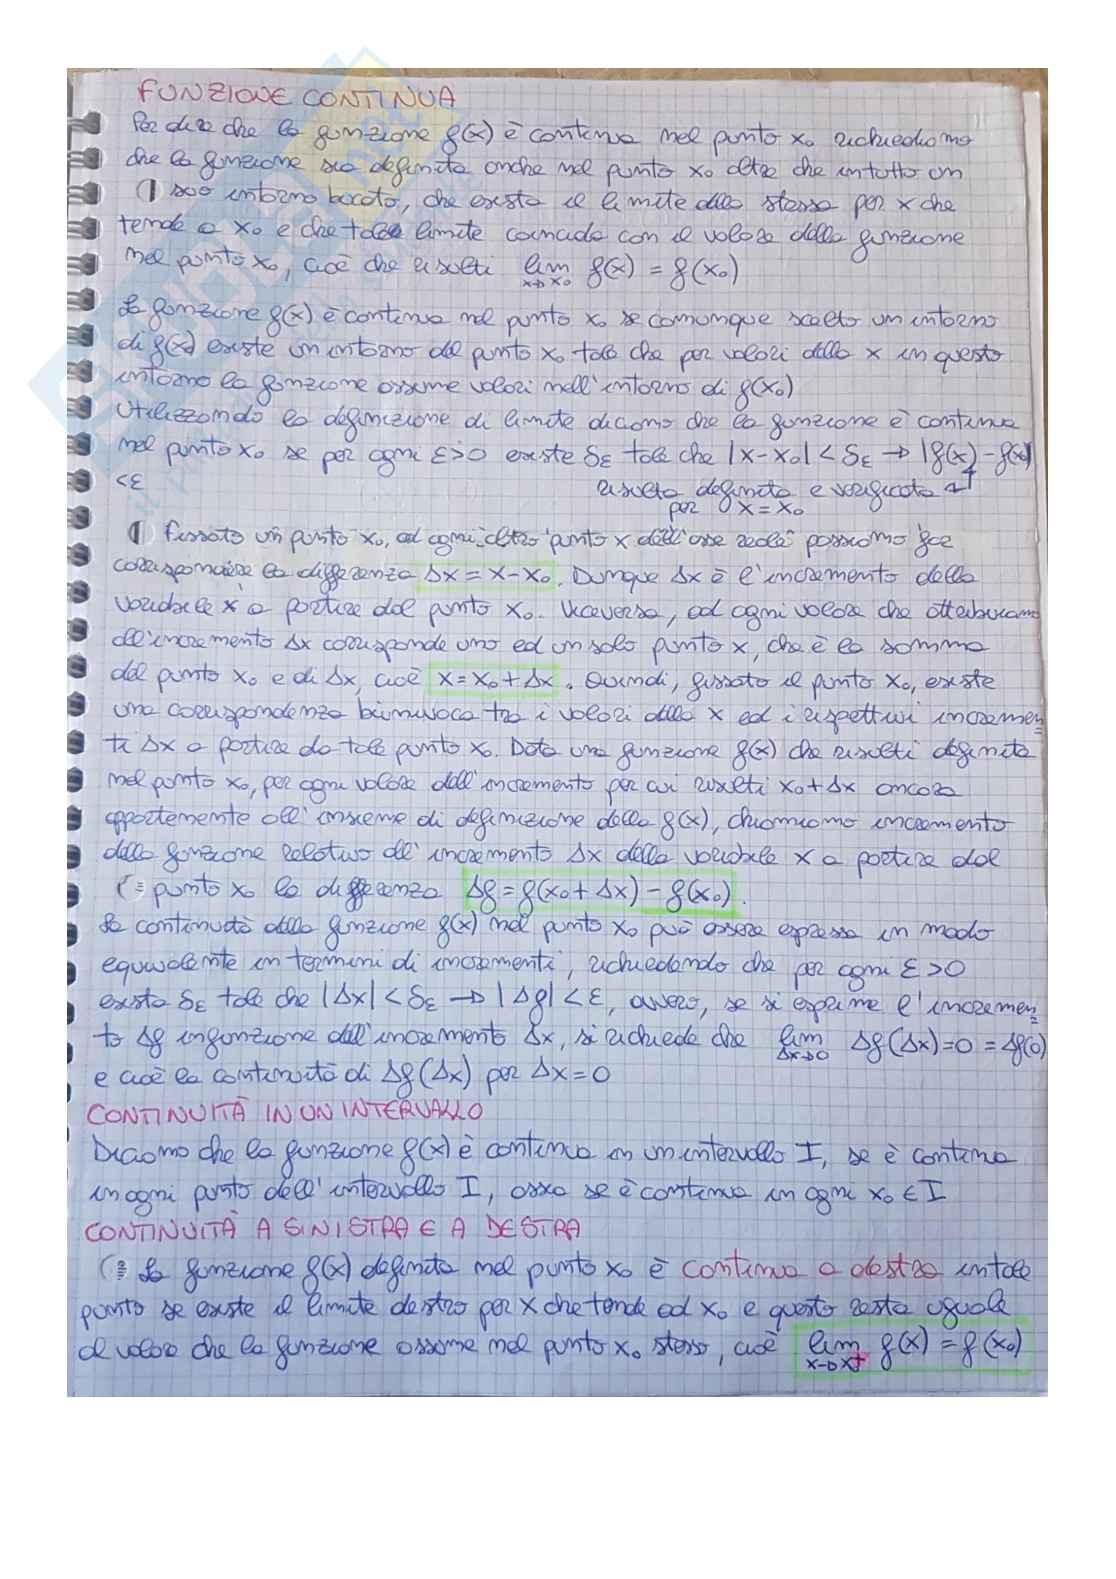 FUNZIONE CONTINUA
Per dire che la funzione f(x) è continua nel punto x₀ richiediamo
che la funzione sia definita anche nel punto x₀ oltre che in tutto un
suo intorno bucato, che esista il limite della stessa per x che
tende a x₀ e che tale limite coincida con il valore della funzione
nel punto x₀, cioè che risulti lim x→x₀ f(x) = f(x₀)
La funzione f(x) è continua nel punto x₀ se comunque scelto un intorno
di f(x₀) esiste un intorno del punto x₀ tale che per valori della x in questo
intorno la funzione assume valori nell'intorno di f(x₀)
Utilizzando la definizione di limite diciamo che la funzione è continua
nel punto x₀ se per ogni ε>0 esiste δε tale che |x-x₀| < δε → |f(x) - f(x₀)|
<ε risulta definita e verificata
per x = x₀
Fissato un punto x₀, ad ogni altro punto x dell'asse reale possiamo far
corrispondere la differenza Δx = x-x₀. Dunque Δx è l'incremento della
variabile x a partire dal punto x₀. Viceversa, ad ogni valore che attribuiamo
all'incremento Δx corrisponde uno ed un solo punto x, che è la somma
del punto x₀ e di Δx, cioè x = x₀ + Δx. Quindi, fissato il punto x₀, esiste
una corrispondenza biunivoca tra i valori della x ed i rispettivi incremen
ti Δx a partire da tale punto x₀. Data una funzione f(x) che risulti definita
nel punto x₀, per ogni valore dell'incremento per cui risulti x₀+Δx ancora
appartenente all'insieme di definizione della f(x), chiamiamo incremento
della funzione relativo all'incremento Δx della variabile x a partire dal
punto x₀ la differenza Δf = f(x₀ + Δx) - f(x₀).
La continuità della funzione f(x) nel punto x₀ può essere espressa in modo
equivalente in termini di incrementi, richiedendo che per ogni ε >0
esista δε tale che |Δx| < δε → |Δf| < ε, ovvero, se si esprime l'incremen
to Δf in funzione dell'incremento Δx, si richiede che lim Δx→0 Δf(Δx)=0 = Δf(0)
e cioè la continuità di Δf(Δx) per Δx=0
CONTINUITÀ IN UN INTERVALLO
Diciamo che la funzione f(x) è continua in un intervallo I, se è continua
in ogni punto dell'intervallo I, ossia se è continua in ogni x₀ ∈ I
CONTINUITÀ A SINISTRA E A DESTRA
La funzione f(x) definita nel punto x₀ è continua a destra in tale
punto se esiste il limite destro per x che tende ad x₀ e questo resta uguale
al valore che la funzione assume nel punto x₀ stesso, cioè lim x→x₀⁺ f(x) = f(x₀)